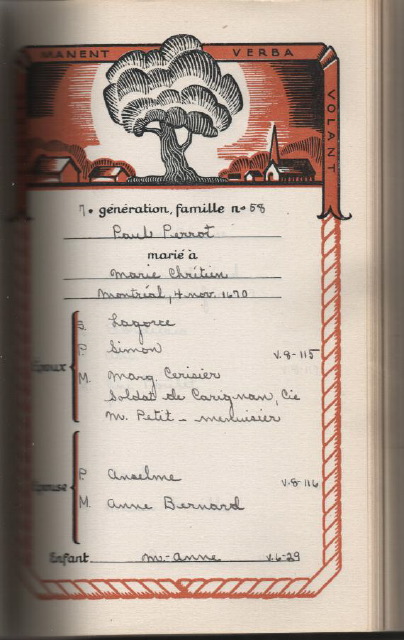 MANENT VERBA
VOLANT
7e génération, famille no 58
Paul Perrot
marié à
Marie Chrétien
Montréal, 4 nov. 1670
S. Lagorce
P. Simon V.8-115
Époux M. Marg Cerisier
Soldat de Carignan, Cie
M. Petit - menuisier
P. Anselme V.8-116
Épouse M. Anne Bernard
Enfant M.-Anne V.6-29